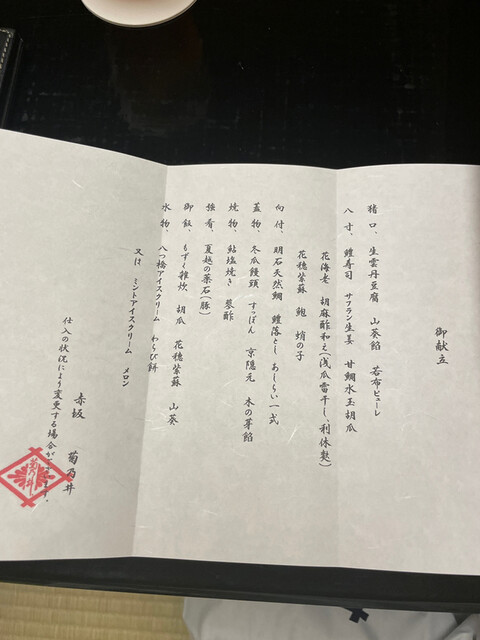 御献立
猪口、生雲丹豆腐 山葵餡 若布ピューレ
八寸、鱧寿司 サフラン生姜 甘鯛水玉胡瓜
花海老 胡麻酢和え(浅瓜雷干し、利休麩)
花穂紫蘇 鮑 蛸の子
向付、明石天然鯛 鱧落とし あしらい一式
蓋物、冬瓜饅頭 すっぽん 京隠元 木の芽餡
焼物、鮎塩焼き 蓼酢
強肴、夏越の薬石(豚)
御飯、もずく雑炊 胡瓜 花穂紫蘇 山葵
水物、八つ橋アイスクリーム わらび餅
又は ミントアイスクリーム メロン
赤坂 菊乃井
仕入の状況により変更する場合がございます。